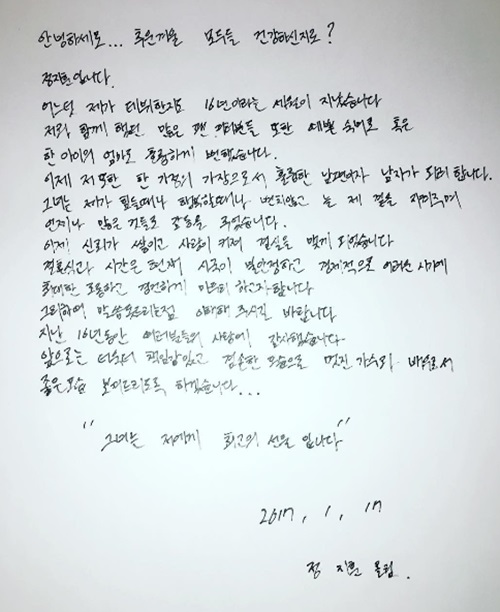 안녕하세요... 추운겨울 모두들 건강하신지요?
정지훈입니다.
어느덧 제가 데뷔한지도 16년이라는 세월이 지났습니다
저와 함께 했던 많은 팬 여러분들 또한 예쁜 숙녀로 혹은
한 아이의 엄마로 훌륭하게 변했습니다.
이제 저 또한 한 가정의 가장으로서 훌륭한 남편이자 남자가 되려 합니다.
그녀는 제가 힘들때나 행복할때나 변치않고 늘 제 곁을 지켜주며
언제나 많은것들로 감동을 주었습니다.
이제! 신뢰가 쌓이고 사랑이 커져 결실을 맺게 되었습니다
결혼식과 시간은 현재 시국이 불안정하고 경제적으로 어려운 시기에
최대한 조용하고 경건하게 마무리 하고자합니다
그리하여 말씀못드리는점 이해해 주시길 바랍니다
지난 16년동안 여러분들의 사랑에 감사했습니다
앞으로는 더욱더 책임감있고 겸손한 모습으로 멋진 가수와 배우로서
좋은모습 보여드리도록 하겠습니다...
"그녀는 저에게 최고의 선물 입니다"
2017, 1, 17
정 지훈 올림.